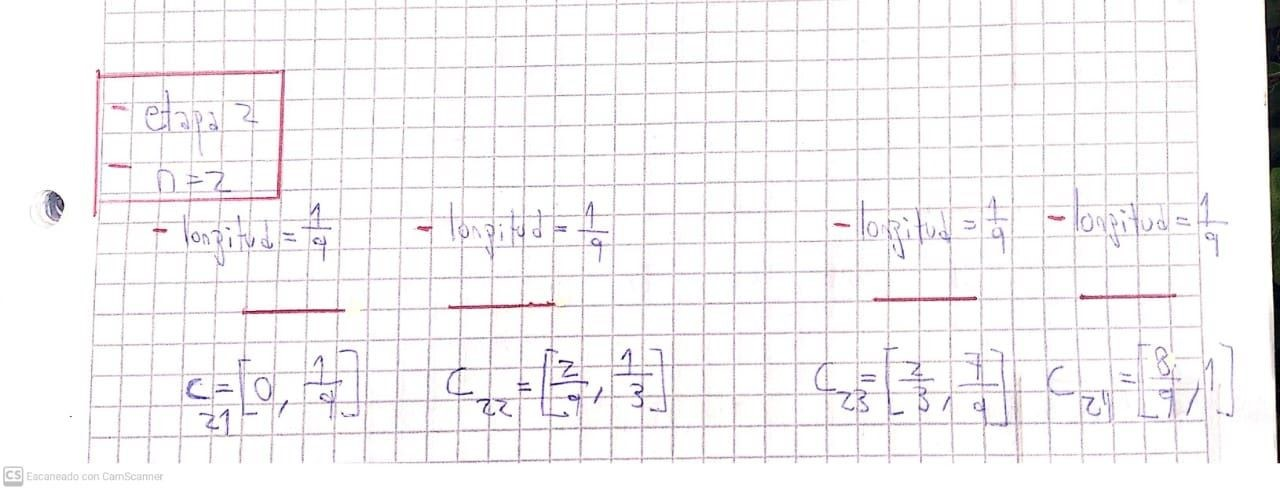 - etapa 2
- n=2
- longitud = 1/9 - longitud = 1/9 - longitud = 1/9 - longitud = 1/9
C21 = [0, 1/9] C22 = [2/9, 1/3] C23 = [2/3, 7/9] C24 = [8/9, 1]
CS Escaneado con CamScanner